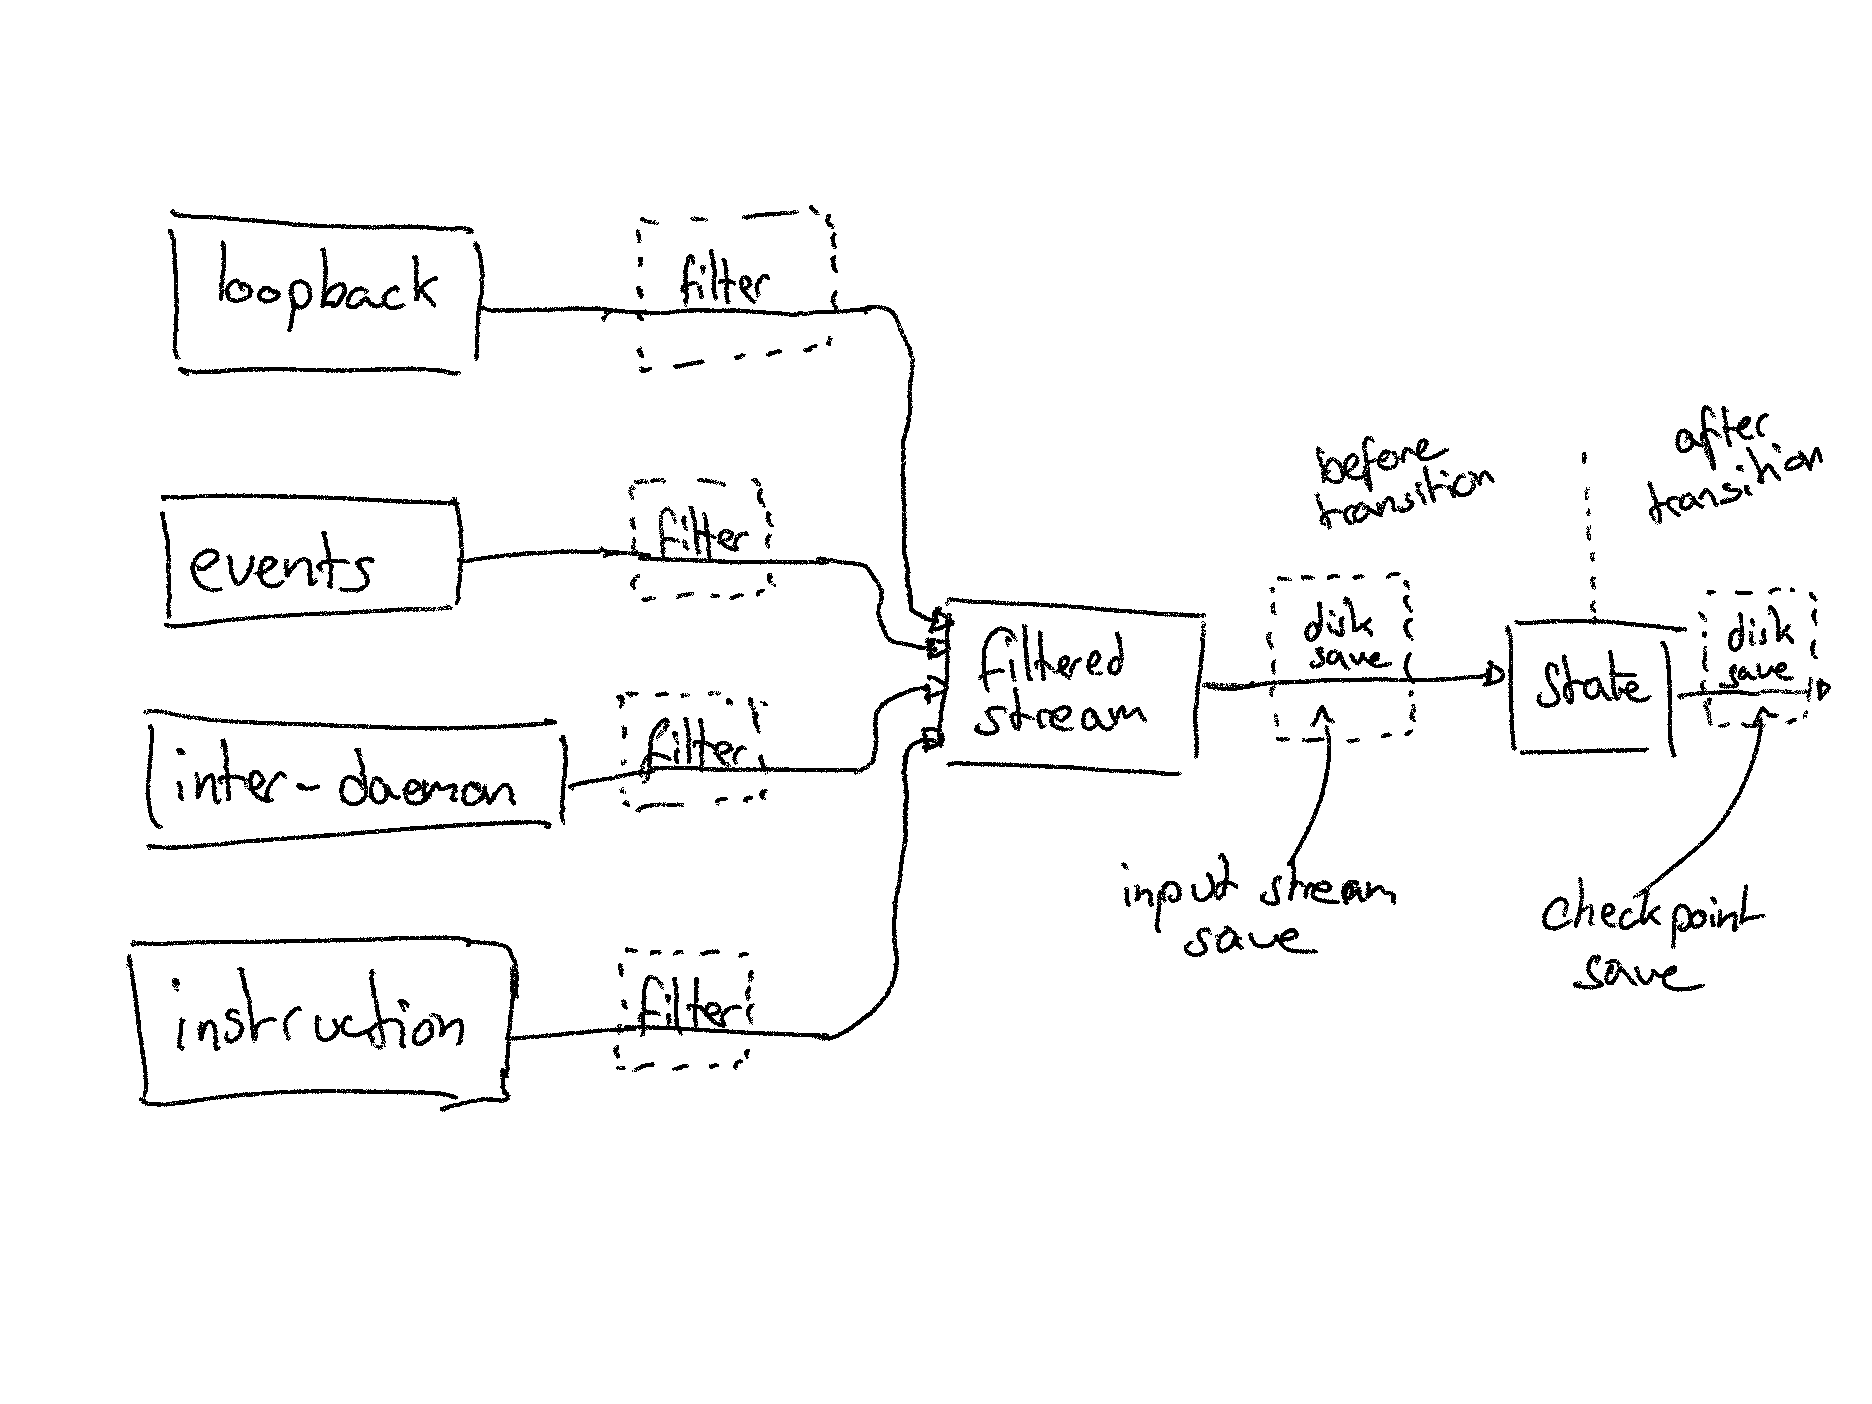 loopback
filter
events
filter
inter-daemon
filter
instruction
filter
filtered
stream
before
transition
disk
save
input stream
save
state
after
transition
disk
save
checkpoint
save